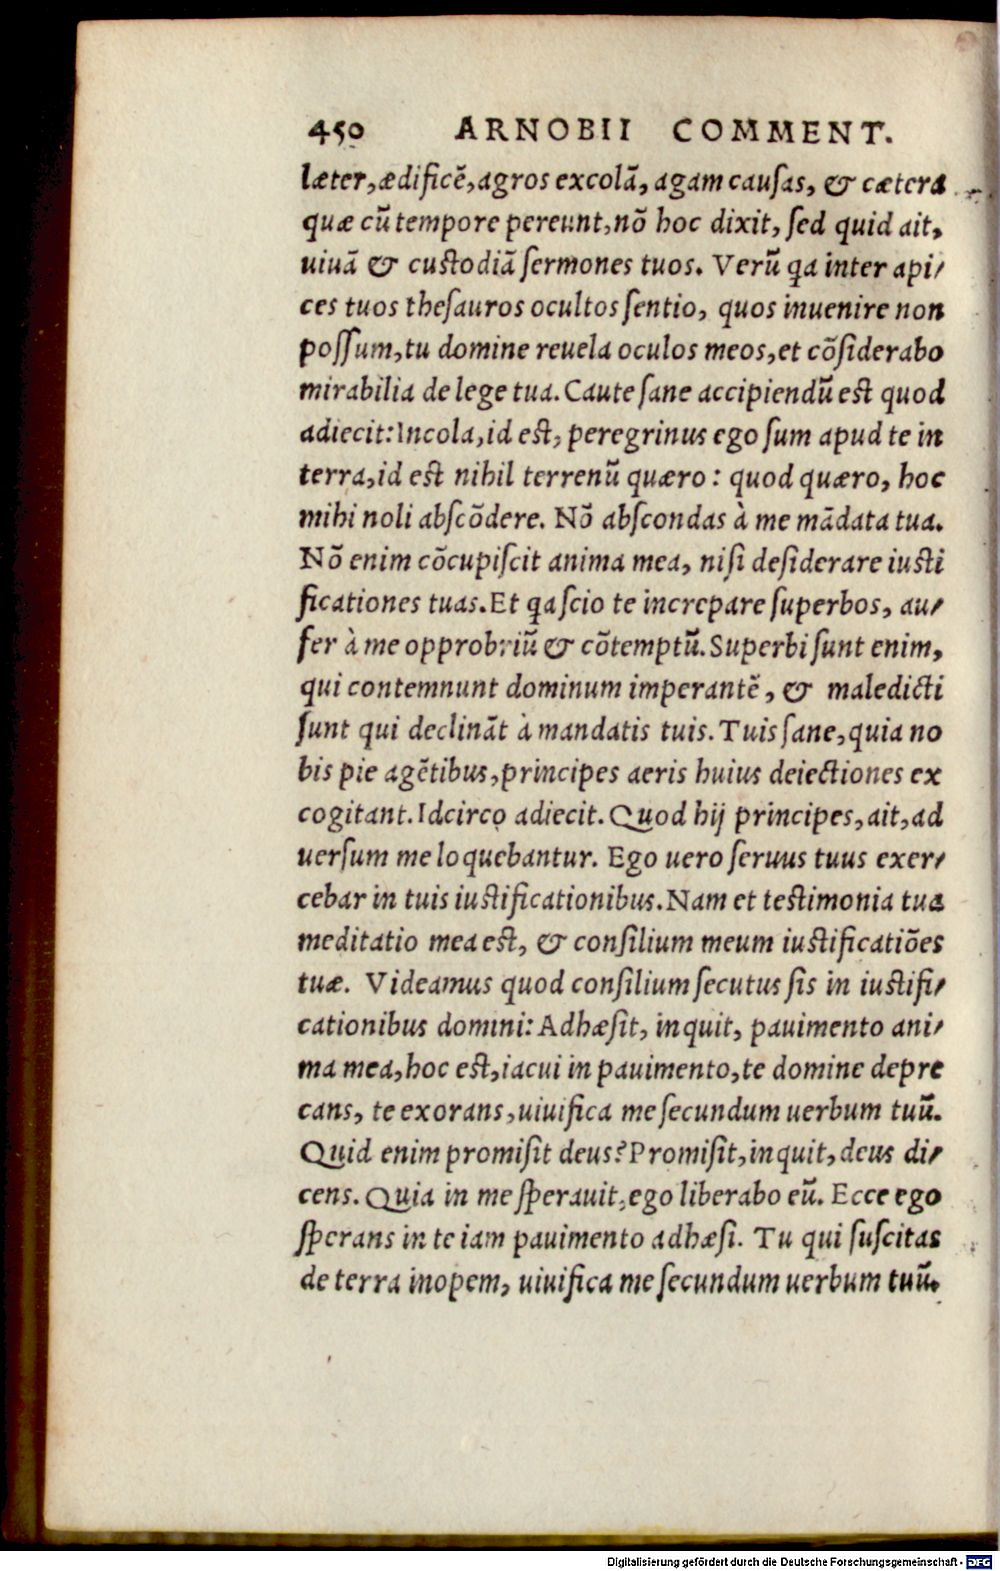 450 ARNOBII COMMENT.
læter, ædificẽ, agros excolã, agam causas, & cætera
quæ cũ tempore pereunt, nõ hoc dixit, sed quid ait,
uiuã & custodiã sermones tuos. Verũ qa inter api/
ces tuos thesauros ocultos sentio, quos inuenire non
possum, tu domine reuela oculos meos, et cõsiderabo
mirabilia de lege tua. Caute sane accipiendũ est quod
adiecit: Incola, id est, peregrinus ego sum apud te in
terra, id est nihil terrenũ quæro: quod quæro, hoc
mihi noli abscõdere. Nõ abscondas à me mãdata tua.
Nõ enim cõcupiscit anima mea, nisi desiderare iusti
ficationes tuas. Et qa scio te increpare superbos, au/
fer à me opprobriũ & cõtemptũ. Superbi sunt enim,
qui contemnunt dominum imperantẽ, & maledicti
sunt qui declinãt à mandatis tuis. Tuis sane, quia no
bis pie agẽtibus, principes aeris huius deiectiones ex
cogitant. Idcirco adiecit. Quod hij principes, ait, ad
uersum me loquebantur. Ego uero seruus tuus exer/
cebar in tuis iustificationibus. Nam et testimonia tua
meditatio mea est, & consilium meum iustificatiões
tuæ. Videamus quod consilium secutus sis in iustifi/
cationibus domini: Adhæsit, inquit, pauimento ani/
ma mea, hoc est, iacui in pauimento, te domine depre
cans, te exorans, uiuifica me secundum uerbum tuũ.
Quid enim promisit deus? Promisit, inquit, deus di/
cens. Quia in me sperauit, ego liberabo eũ. Ecce ego
sperans in te iam pauimento adhæsi. Tu qui suscitas
de terra inopem, uiuifica me secundum uerbum tuũ.
Digitalisierung gefördert durch die Deutsche Forschungsgemeinschaft - DFG